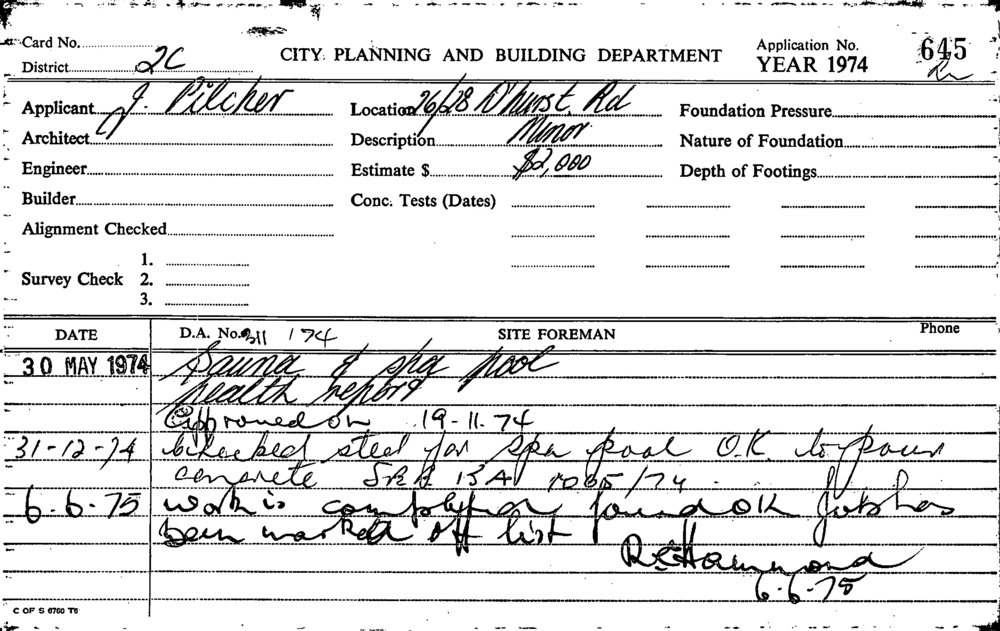 Card No.
District 2C
CITY PLANNING AND BUILDING DEPARTMENT
Application No. 645
YEAR 1974
Applicant J. Pilcher
Location 26/28 D'hurst. Rd
Foundation Pressure
Architect
Description Minor
Nature of Foundation
Engineer
Estimate $ $2,000
Depth of Footings
Builder
Conc. Tests (Dates)
Alignment Checked
Survey Check 1.
2.
3.
DATE D.A. No. 311 174 SITE FOREMAN Phone
30 MAY 1974 Sauna & spa pool
health report
Approved on 19-11-74
31-12-74 checked steel for spa pool O.K. to pour
concrete SEE BA 1065/74
6.6.75 work is found OK Job has
been marked off list
R Hammond
6.6.75
C OF S 6760 T6